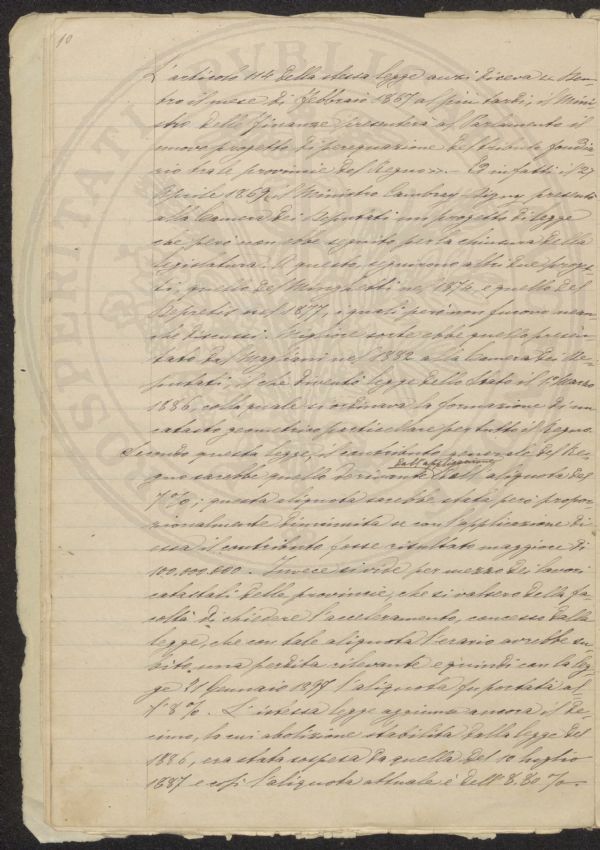 10
L'articolo 114 della stessa legge anzi diceva « Den-
tro il mese di Febbraio 1867 al più tardi, il Mini
stro delle Finanze presenterà al Parlamento il
nuovo progetto di perequazione del tributo fondia
rio tra le provincie del Regno ». – Ed infatti il 27
Aprile 1869, il Ministro Cambray Digny presentò
alla Camera dei Deputati un progetto di legge
che però non ebbe seguito per la chiusura della
legislatura. A questo, seguirono altri due proget
ti, quello del Minghetti nel 1874, e quello del
Depretis nel 1877, i quali però non furono nean
che discussi. Migliore sorte ebbe quello presen
tato dal Magliani nel 1882 alla Camera dei De-
putati, e che diventò legge dello Stato il 1° Marzo
1886, colla quale si ordinava la formazione di un
catasto geometrico particellare per tutto il Regno.
Secondo questa legge, il contributo generale del Re-
gno sarebbe quello derivante dall'applicazione dell'aliquota del
7%; questa aliquota sarebbe stata però propor
zionalmente diminuita se con l'applicazione di
essa il contributo fosse risultato maggiore di
100.000.000. Invece si vide, per mezzo dei lavori
catastali delle provincie, che si valsero della fa-
coltà di chiedere l'acceleramento, concesso dalla
legge, che con tale aliquota l'erario avrebbe su-
bito una perdita rilevante e quindi con la leg-
ge 21 Gennaio 1897 l'aliquota fu portata al-
l'8%. L'istessa legge aggiunse ancora il de-
cimo, la cui abolizione stabilita dalla legge del
1886, era stata sospesa da quella del 10 luglio
1887 e così l'aliquota attuale è dell'8.80%.